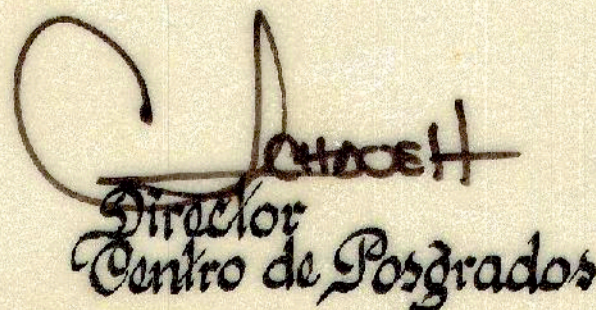 Director
Centro de Posgrados